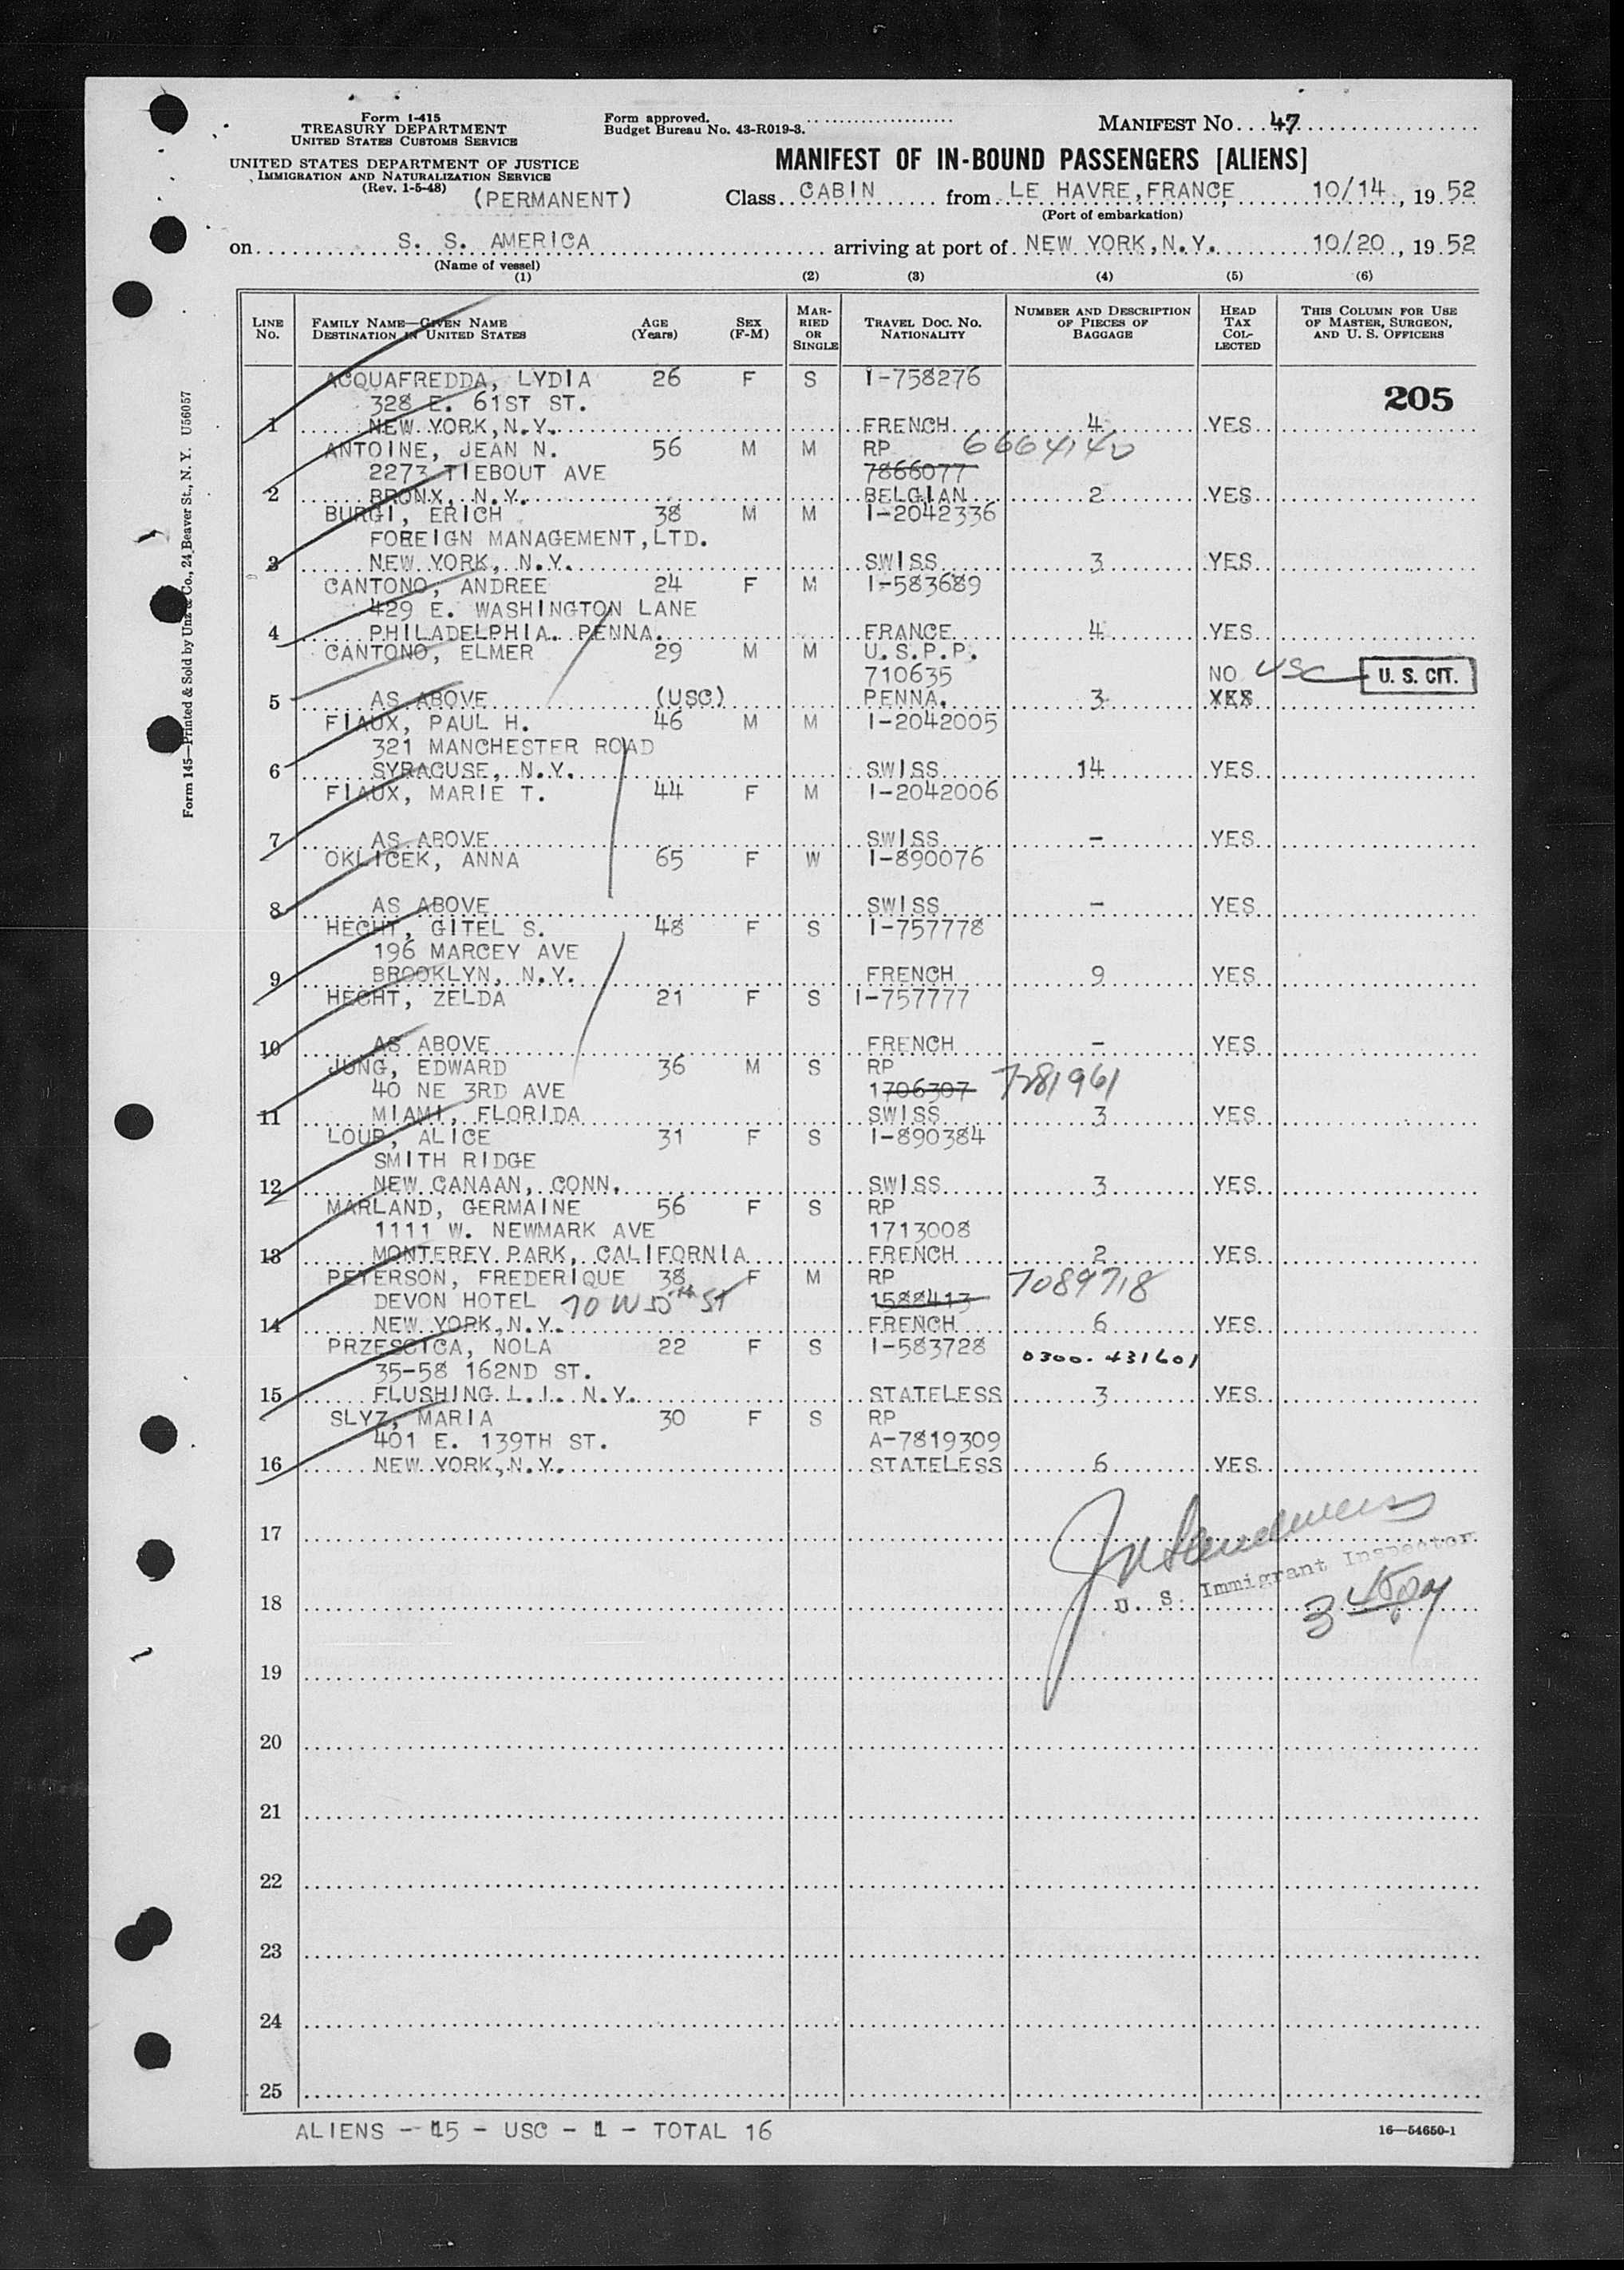 Form I-415
TREASURY DEPARTMENT
UNITED STATES CUSTOMS SERVICE
UNITED STATES DEPARTMENT OF JUSTICE
IMMIGRATION AND NATURALIZATION SERVICE
(Rev. 1-5-48)
(PERMANENT)
Form approved.
Budget Bureau No. 43-R019-3.
MANIFEST NO. 47
MANIFEST OF IN-BOUND PASSENGERS [ALIENS]
Class CABIN from LE HAVRE, FRANCE, 10/14, 19 52
(Port of embarkation)
on S. S. AMERICA arriving at port of NEW YORK, N.Y. 10/20, 19 52
(Name of vessel)
(1) (2) (3) (4) (5) (6)
LINE NO. FAMILY NAME—GIVEN NAME DESTINATION IN UNITED STATES AGE (Years) SEX (F-M) MARRIED OR SINGLE TRAVEL DOC. NO. NATIONALITY NUMBER AND DESCRIPTION OF PIECES OF BAGGAGE HEAD TAX COLLECTED THIS COLUMN FOR USE OF MASTER, SURGEON, AND U. S. OFFICERS
ACQUAFREDDA, LYDIA 26 F S I-758276
328 E. 61ST ST. 205
1 NEW YORK, N.Y. FRENCH 4 YES
ANTOINE, JEAN N. 56 M M RP 6664140
2273 TIEBOUT AVE 7866077
2 BRONX, N.Y. BELGIAN 2 YES
BURGI, ERICH 38 M M I-2042336
FOREIGN MANAGEMENT, LTD.
3 NEW YORK, N.Y. SWISS 3 YES
CANTONO, ANDREE 24 F M I-583689
429 E. WASHINGTON LANE
4 PHILADELPHIA. PENNA. FRANCE 4 YES
CANTONO, ELMER 29 M M U.S.P.P.
710635 NO USC U. S. CIT.
5 AS ABOVE (USC) PENNA. 3 YES
FIAUX, PAUL H. 46 M M I-2042005
321 MANCHESTER ROAD
6 SYRACUSE, N.Y. SWISS 14 YES
FIAUX, MARIE T. 44 F M I-2042006
7 AS ABOVE SWISS – YES
OKLICEK, ANNA 65 F W I-890076
8 AS ABOVE SWISS – YES
HECHT, GITEL S. 48 F S I-757778
196 MARCEY AVE
9 BROOKLYN, N.Y. FRENCH 9 YES
HECHT, ZELDA 21 F S I-757777
10 AS ABOVE FRENCH – YES
JUNG, EDWARD 36 M S RP
40 NE 3RD AVE 1706307 7281961
11 MIAMI, FLORIDA SWISS 3 YES
LOUP, ALICE 31 F S I-890384
SMITH RIDGE
12 NEW CANAAN, CONN. SWISS 3 YES
MARLAND, GERMAINE 56 F S RP
1111 W. NEWMARK AVE 1713008
13 MONTEREY PARK, CALIFORNIA FRENCH 2 YES
PETERSON, FREDERIQUE 38 F M RP 7089718
DEVON HOTEL 70 W 55th ST 1588413
14 NEW YORK, N.Y. FRENCH 6 YES
PRZESCICA, NOLA 22 F S I-583728 0300-431601
35-58 162ND ST.
15 FLUSHING L.I. N.Y. STATELESS 3 YES
SLYZ, MARIA 30 F S RP
401 E. 139TH ST. A-7819309
16 NEW YORK, N.Y. STATELESS 6 YES
17
U. S. Immigrant Inspector
18
19
20
21
22
23
24
25
ALIENS - 15 - USC - 1 - TOTAL 16
16—54650-1
Form 145—Printed & Sold by Unz & Co., 24 Beaver St., N. Y. U56057